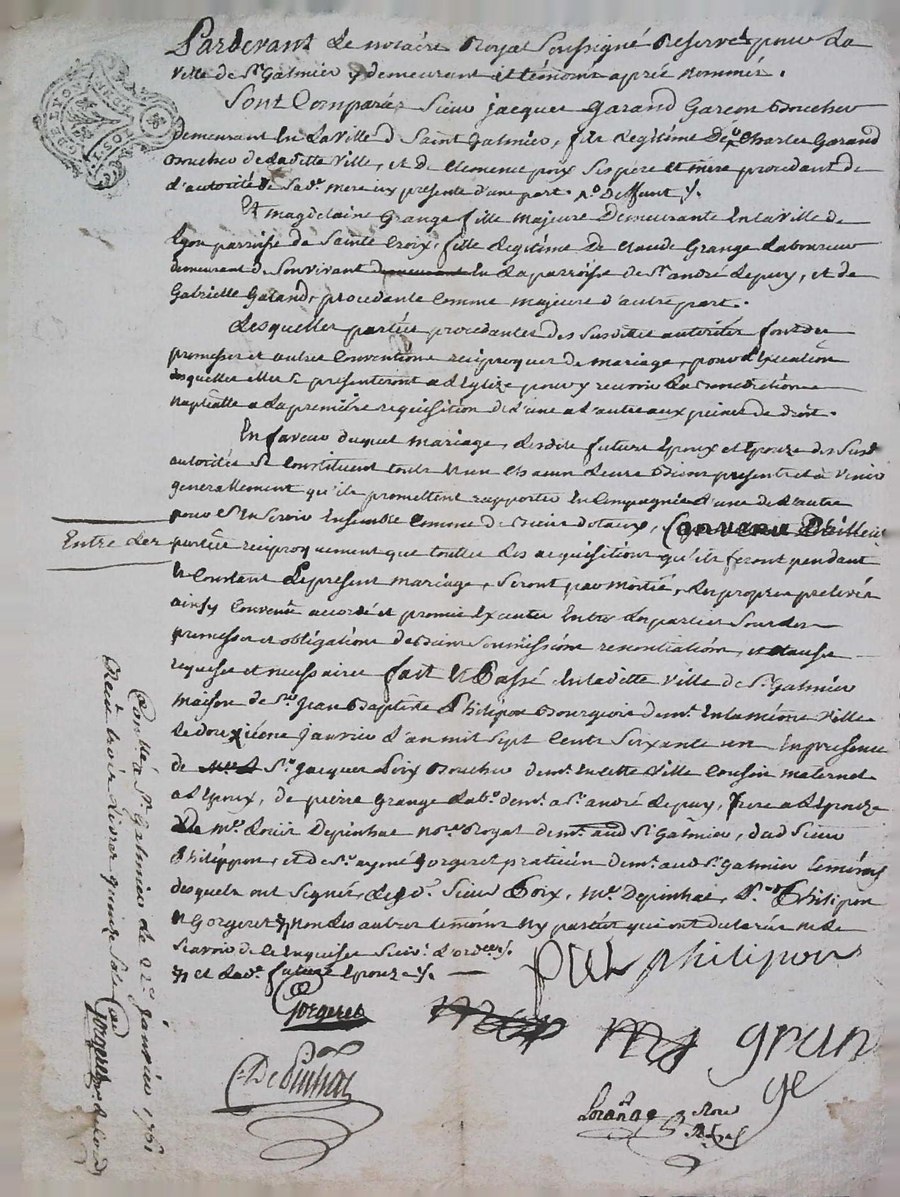 Pardevant Le notaire Royal Soussigné Reservé pour La
ville de St Galmier y demeurant et témoins après nommés.
Sont Comparés Sieur jacques Garand Garçon Boucher
demeurant en La ville de Saint Galmier, fils Legitime De Charles Garand
Boucher de Ladette ville, et de Clemence poix Ses père et mère procedant de
L'autorité de Sad. mere icy presente d'une part.
Et magdelaine Grange fille majeure Demeurante En la ville de
Lyon parroisse de Sainte Croix, fille Legitime De Claude Grange Laboureur
demeurant de Son vivant demeurant En La parroisse de St andré Lepuy, et de
Gabrielle Garand, procedante Comme majeure d'autre part.
Lesquelles parties procedantes des Susdittes autorités font des
promesses et autres Conventions reciproques de mariage, pour L'Execution
desquelles elles Se presenteront a L'Eglize pour y recevoir La Benediction
nuptialle a La premiere requisition de L'une a L'autre aux peines de droit.
En faveur duquel mariage, Lesdits futurs Epoux et Epouze des Susd.
autorités Se Constituent touts Et un Chacun Leurs Biens presents et a Venir
generallement qu'ils promettent rapporter En Compagnie L'une de L'autre
pour S'En Servir Ensemble Comme de Biens dotaux, Convenu D'ailleurs
Entre Les
parties reciproquement que touttes Les acquisitions qu'ils feront pendant
Et Constant Le present mariage, Seront par moitié, Les propres prelevés
ainsy Convenu accordé et promis Executer Entre Les parties Sous Leurs
promesses et obligations de Biens Soumissions renonciations, et clauses
requises et necessaires fait Et Passé En Ladette ville de St Galmier
maison de Sr Jean Baptiste Philipon Bourgeois demt. En La meme ville
Le douxieme janvier L'an mil Sept Cents Soixante un En presence
de Sr jacques Poix Boucher demt. En cette ville Cousin maternel
a L'Epoux, de pierre Grange Labr. demt. a St. andré Lepuy, frere a L'Epouze
De me. Louis Depinhac nore. Royal demt. aud St Galmier, dud Sieur
Philippon, et de Sr. aymé Gorgeret praticien demt. aud St Galmier temoins
desquels ont Signé, Led. Sieur Poix, me. Depinhac, Philipon
et Gorgeret non Les autres temoins ny parties qui ont declaré ne Le
Scavoir de ce Enquises
et Lad. future Epouze
philipon
Gorgeret
mg gran
ge
DePinhac
Controllé a St Galmier le 22e janvier 1761
Receu trois Livres quinze Sols
Gorgeret